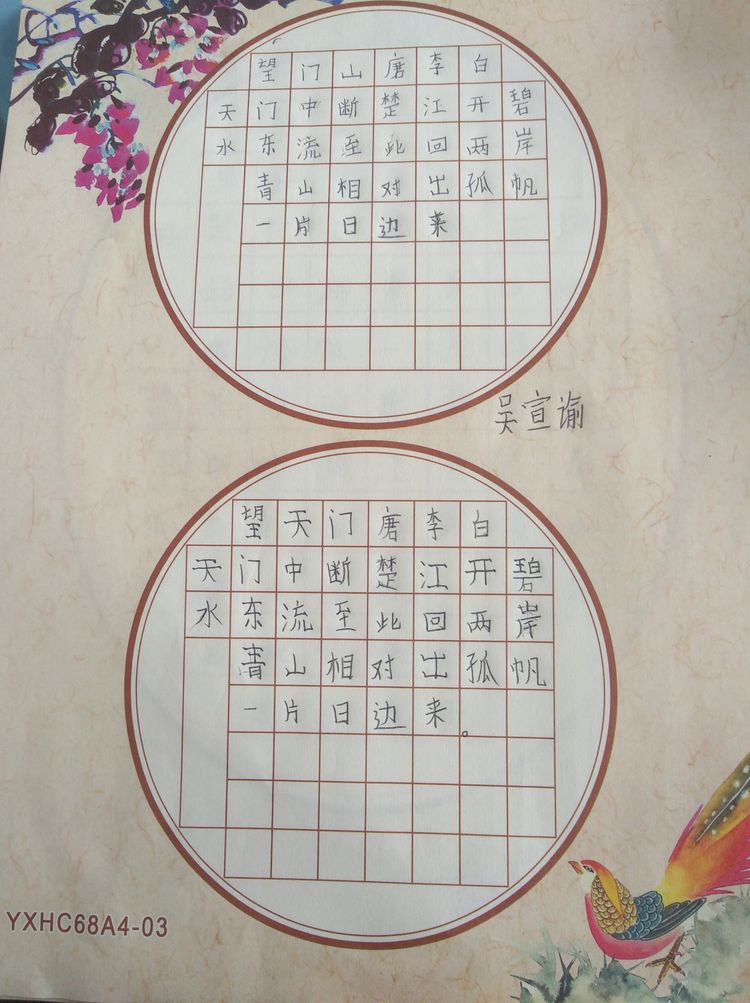 望门山唐李白
天门中断楚江开碧
水东流至此回两岸
青山相对出孤帆
一片日边来
吴宣谕
望天门唐李白
天门中断楚江开碧
水东流至此回两岸
青山相对出孤帆
一片日边来。
YXHC68A4-03